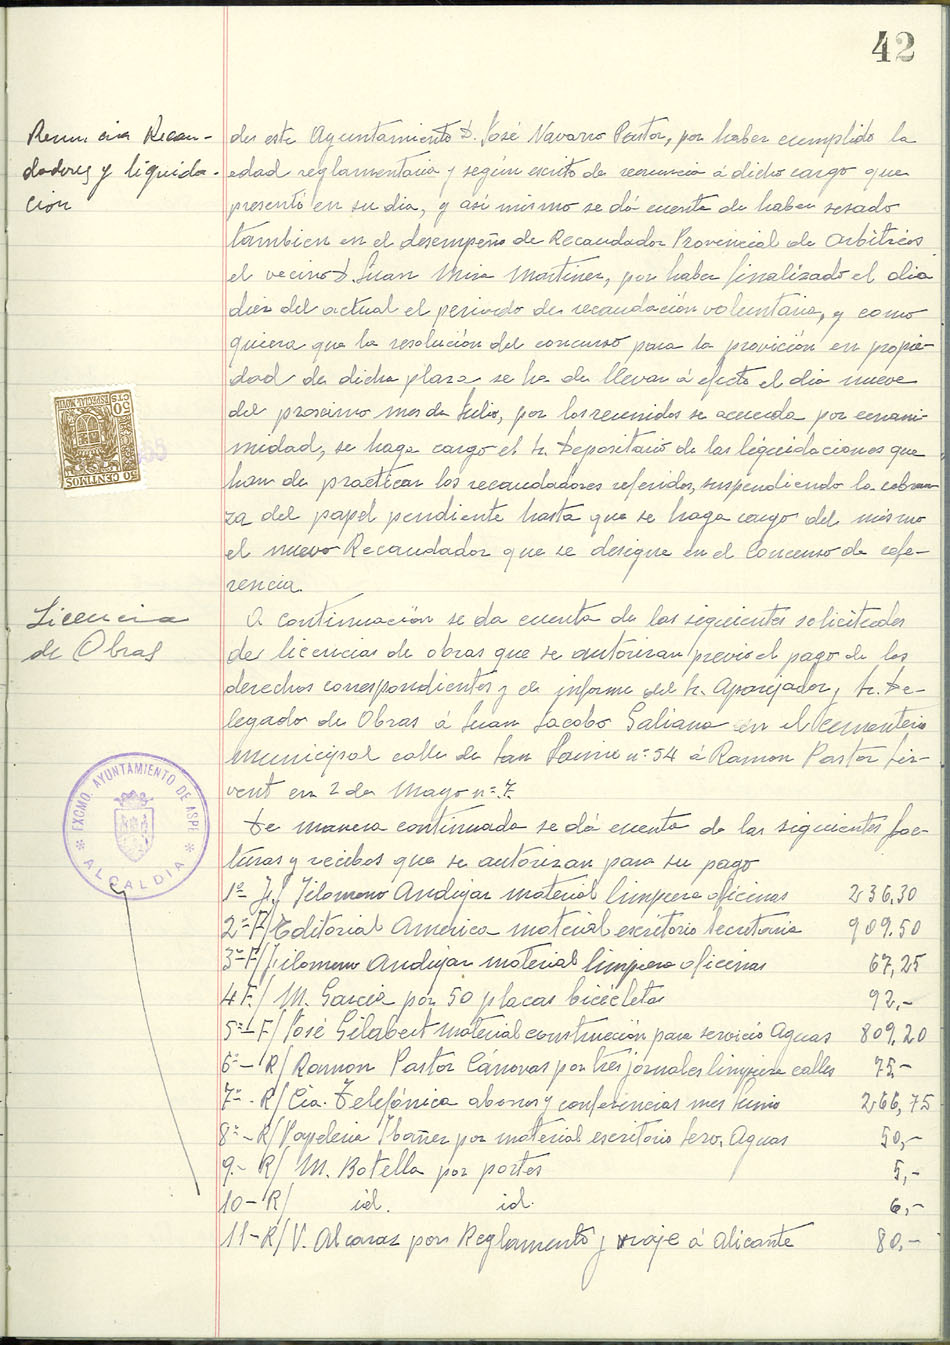 42
Renuncia Recau-
dadores y liquida-
ción
de este Ayuntamiento D. José Navarro Pastor, por haber cumplido la
edad reglamentaria y según escrito de renuncia á dicho cargo que
presentó en su dia, y asi mismo se dá cuenta de haber sesado
tambien en el desempeño de Recaudador Provincial de Arbitrios
el vecino D. Juan Mira Martinez, por haber finalizado el dia
diez del actual el periodo de recaudación voluntaria, y como
quiera que la resolución del concurso para la provición en propie-
dad de dicha plaza se ha de llevar á efecto el dia nueve
del prosximo mes de Julio, por los reunidos se acuerda por unani-
midad, se haga cargo el Sr. Depositario de las liquidaciones que
han de practicar los recaudadores referidos, suspendiendo la cobran-
za del papel pendiente hasta que se haga cargo del mismo
el nuevo Recaudador que se designe en el Concurso de refe-
rencia.
50 CTS
ESPECIAL MOVIL
50 CENTIMOS
Licencia
de Obras
A continuación se da cuenta de las siguientes solicitudes
de licencias de obras que se autorizan previo el pago de los
derechos correspondientes y el informe del Sr. Aparejador y Sr. De-
legado de Obras á Juan Jacobo Galiana en el Cementerio
Municipal calle de San Jaime nº 54 á Ramon Pastor Sir-
vent en 2 de Mayo nº 7.
EXCMO. AYUNTAMIENTO DE ASPE
* ALCALDIA *
De manera continuada se dá cuenta de las siguientes fac-
turas y recibos que se autorizan para su pago
1º F/ Filomeno Andujar material limpieza oficinas 236,30
2º F/ Editorial América material escritorio Secretaria 909.50
3º F/ Filomeno Andujar material limpieza oficinas 67,25
4 F/ M. Garcia por 50 placas bicicletas 92,-
5º - F/ José Gilabert material construcción para servicio Aguas 809,20
6º - R/ Ramon Pastor Cánovas por tres jornales limpieza calles 75,-
7º - R/ Cia. Telefónica abonos y conferencias mes Junio 266,75
8º - R/ Papeleria Ibañez por material escritorio Serv. Aguas 50,-
9- R/ M. Botella por portes 5,-
10- R/ id. id. 6,-
11- R/ V. Alcaraz por Reglamento y viaje á Alicante 80,-